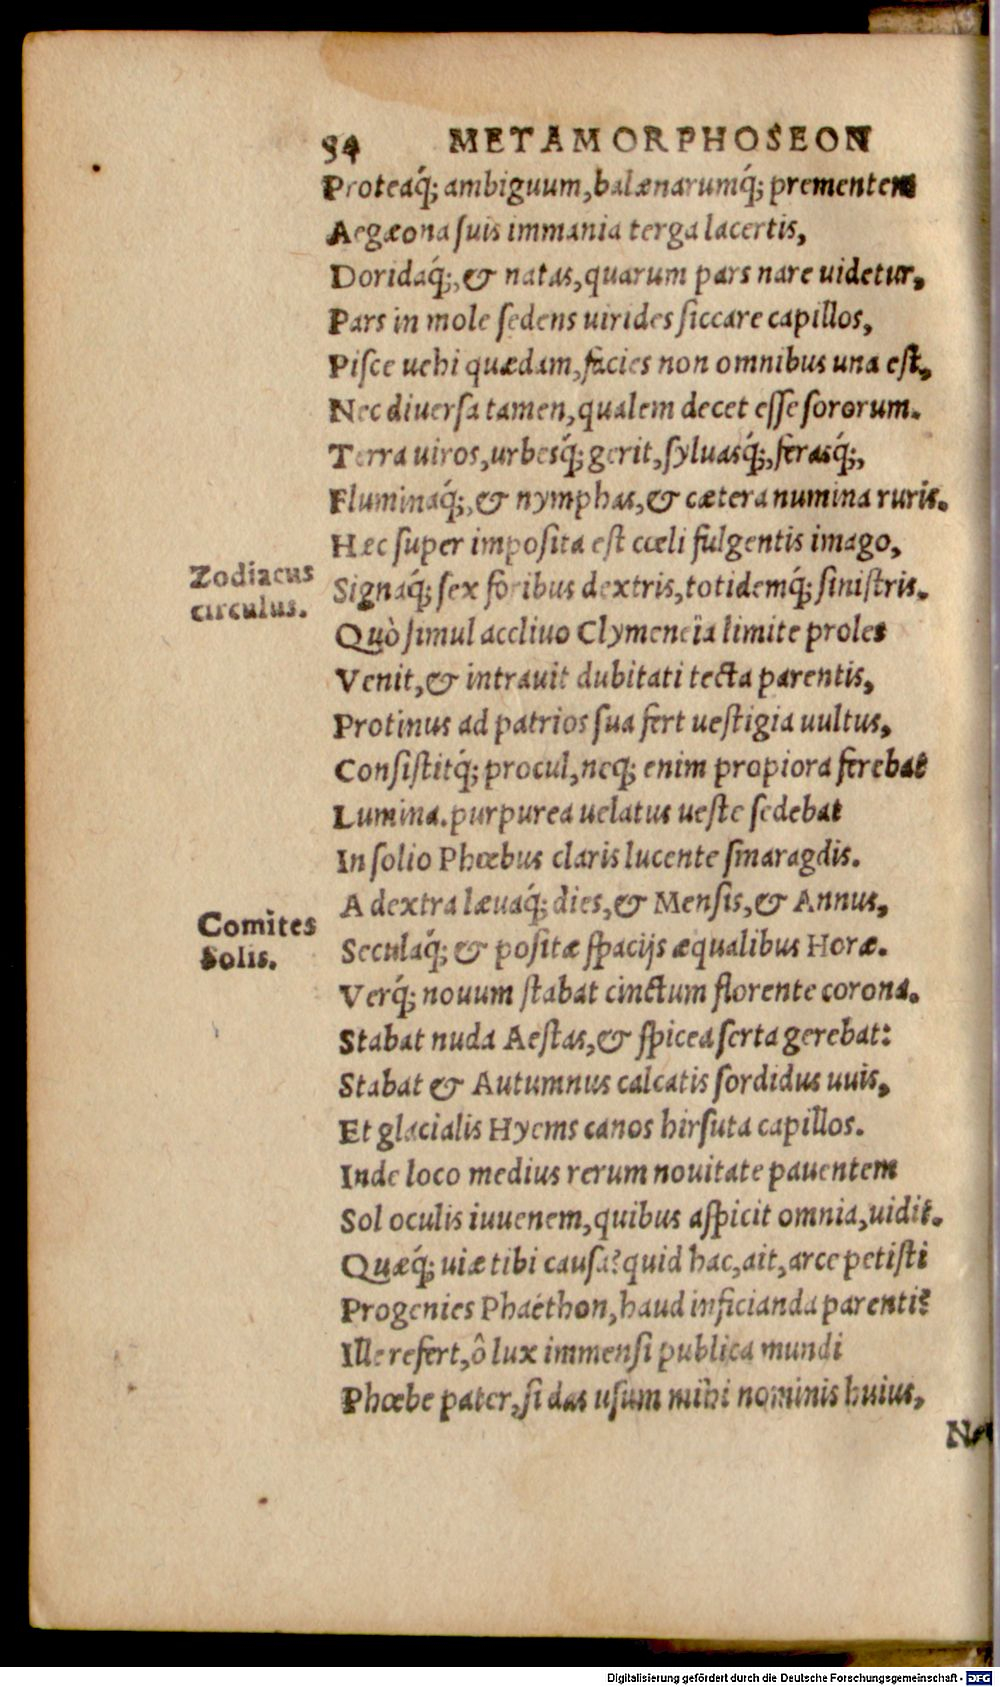 54 METAMORPHOSEON
Proteaq́; ambiguum, balænarumq́; prementem
Aegæona suis immania terga lacertis,
Doridaq́;, & natas, quarum pars nare uidetur,
Pars in mole sedens uirides siccare capillos,
Pisce uehi quædam, facies non omnibus una est,
Nec diuersa tamen, qualem decet esse sororum.
Terra uiros, urbesq́; gerit, syluasq́;, ferasq́;,
Fluminaq́;, & nymphas, & cætera numina ruris.
Hæc super imposita est cœli fulgentis imago,
Zodiacus
circulus.
Signaq́; sex foribus dextris, totidemq́; sinistris.
Quò simul accliuo Clymeneïa limite proles
Venit, & intrauit dubitati tecta parentis,
Protinus ad patrios sua fert uestigia uultus,
Consistitq́; procul, neq; enim propiora ferebat
Lumina. purpurea uelatus ueste sedebat
In solio Phœbus claris lucente smaragdis.
A dextra læuaq́; dies, & Mensis, & Annus,
Comites
Solis.
Seculaq́; & positæ spacijs æqualibus Horæ.
Verq́; nouum stabat cinctum florente corona.
Stabat nuda Aestas, & spicea serta gerebat:
Stabat & Autumnus calcatis sordidus uuis,
Et glacialis Hyems canos hirsuta capillos.
Inde loco medius rerum nouitate pauentem
Sol oculis iuuenem, quibus aspicit omnia, uidit.
Quæq́; uiæ tibi causa? quid hac, ait, arce petisti
Progenies Phaëthon, haud inficianda parenti?
Ille refert, ô lux immensi publica mundi
Phœbe pater, si das usum mihi nominis huius,
Digitalisierung gefördert durch die Deutsche Forschungsgemeinschaft - DFG